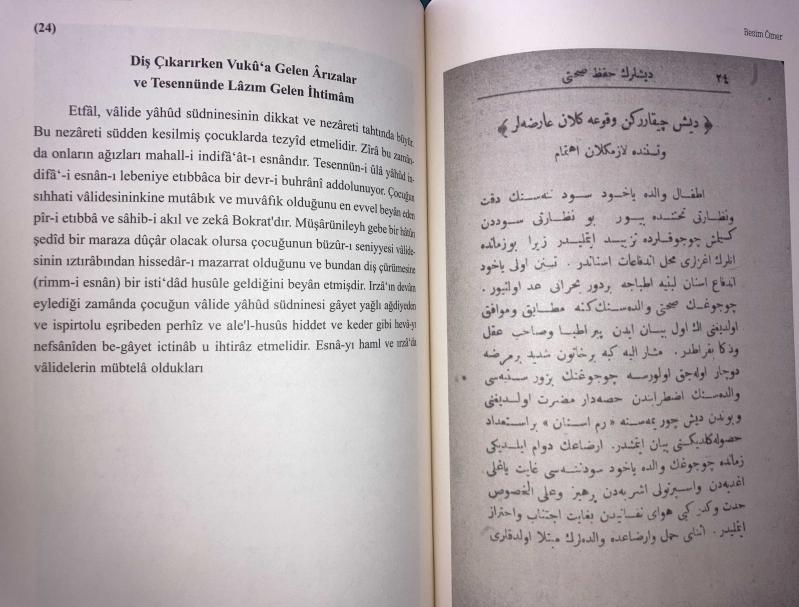 (24)
Diş Çıkarırken Vukû‘a Gelen Ârızalar
ve Tesennünde Lâzım Gelen İhtimâm
Etfâl, vâlide yâhûd südninesinin dikkat ve nezâreti tahtında büyür.
Bu nezâreti südden kesilmiş çocuklarda tezyîd etmelidir. Zîrâ bu zamân-
da onların ağızları mahall-i indifâ‘ât-ı esnândır. Tesennün-i ûlâ yâhûd in-
difâ‘-i esnân-ı lebeniye etıbbâca bir devr-i buhrânî addolunuyor. Çocuğun
sıhhati vâlidesininkine mutâbık ve muvâfık olduğunu en evvel beyân eden
pîr-i etıbbâ ve sâhib-i akıl ve zekâ Bokrat'dır. Müşârünileyh gebe bir hâtûn
şedîd bir maraza dûçâr olacak olursa çocuğunun büzûr-ı seniyyesi vâlide-
sinin ıztırâbından hissedâr-ı mazarrat olduğunu ve bundan diş çürümesine
(rimm-i esnân) bir isti‘dâd husûle geldiğini beyân etmişdir. Irzâ‘ın devâm
eylediği zamânda çocuğun vâlide yâhûd südninesi gâyet yağlı ağdiyeden
ve ispirtolu eşribeden perhîz ve ale'l-husûs hiddet ve keder gibi hevâ-yı
nefsâniden be-gâyet ictinâb u ihtirâz etmelidir. Esnâ-yı haml ve ırzâ‘da
vâlidelerin mübtelâ oldukları
Besim Ömer
٢٤ ديشلرك حفظ صحتی
﴿ ديش چيقارركن وقوعه كلان عارضه‌لر ﴾
وتسننده لازمكلان اهتمام
اطفال والده ياخود سود ننه‌سنك دقت
ونظارتی تحتنده بيور بو نظارتی سوددن
كسلمش چوجوقلرده تزييد ايتمليدر زيرا بوزمانده
انلرك اغزلری محل اندفاعات اسناندر. تسنن اولی ياخود
اندفاع اسنان لبنيه اطباجه بردور بحرانی عد اولنيور.
چوجوغك صحتی والده‌سنككنه مطابق وموافق
اولديغنی اك اول بيان ايدن پير اطبا وصاحب عقل
وذكا بقراطدر. مشار اليه كبه برخاتون شديد برمرضه
دوچار اوله‌جق اولورسه چوجوغنك بزور سنيه‌سی
والده‌سنك اضطرابندن حصه‌دار مضرت اولديغنی
وبوندن ديش چوريمه‌سنه « رم اسنان » براستعداد
حصوله‌كلديكنی بيان ايتمشدر. ارضاعك دوام ايلديكی
زمانده چوجوغك والده ياخود سودننه‌سی غايت ياغلی
اغديه‌دن واسپرتولی اشربه‌دن پرهيز وعلی الخصوص
حدت وكدر كبی هوای نفسانيدن بغايت اجتناب واحتراز
ايتمليدر. اثنای حمل وارضاعده والده‌لرك مبتلا اولدقلری